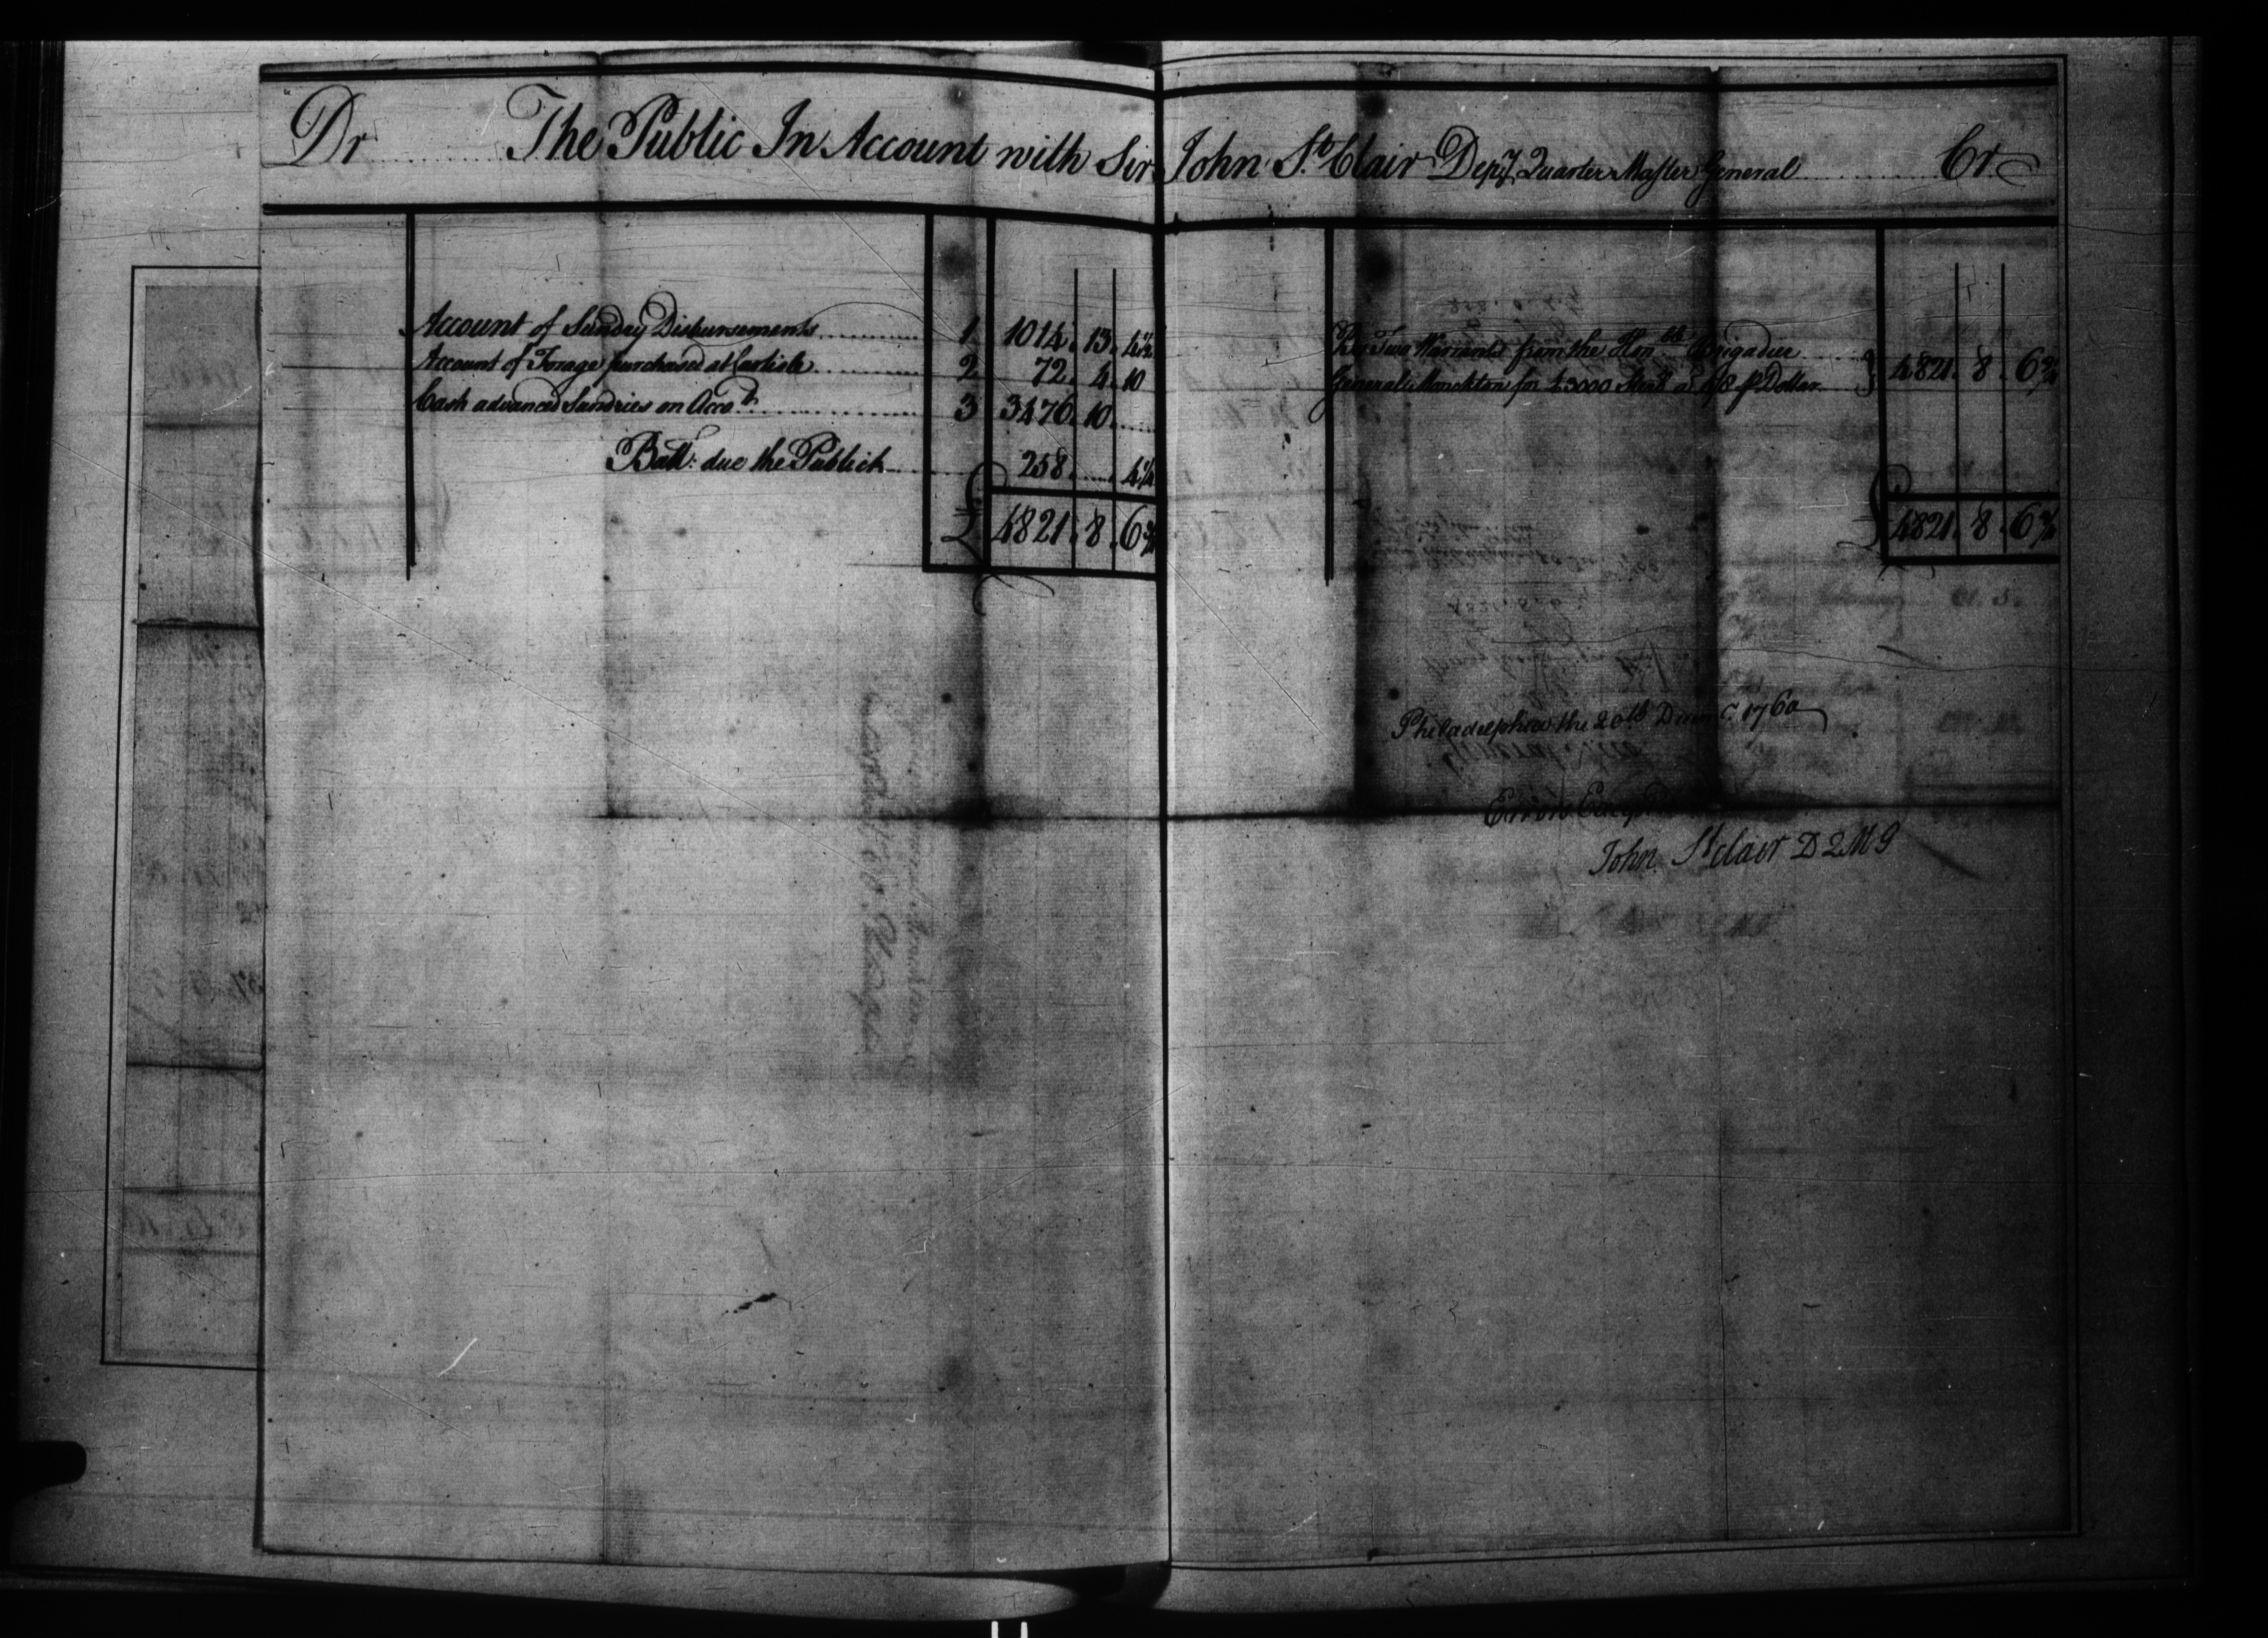 Dr The Public In Account with Sir John St. Clair Depy. Quarter Master General Cr
Account of Sundry Disbursements 1 1014. 13. 4½
Account of Forage purchased at Carlisle 2 72. 4. 10
Cash advanced Sundries on Accot. 3 3476. 10.
Ball: due the Publick 258. 4¼
£ 4821. 8. 6¾
By Two Warrants from the Honble. Brigadier
General Monckton for £3000 Sterg at 4/8 p Dollar 4821. 8. 6¾
£ 4821. 8. 6¾
Philadelphia the 20th Decemr. 1760
Errors Excepd
John St clair D Q M G